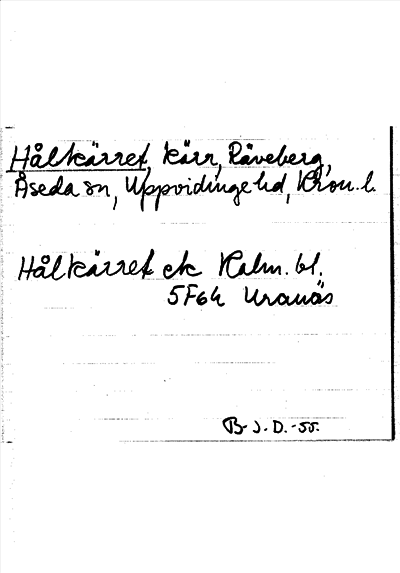 Hålkärret, kärr, Räveberg,
Åseda sn, Uppvidinge hd, Kron. l.
Hålkärret ek Kalm. bl.
5F6h Uranäs
B. J. D. -55.